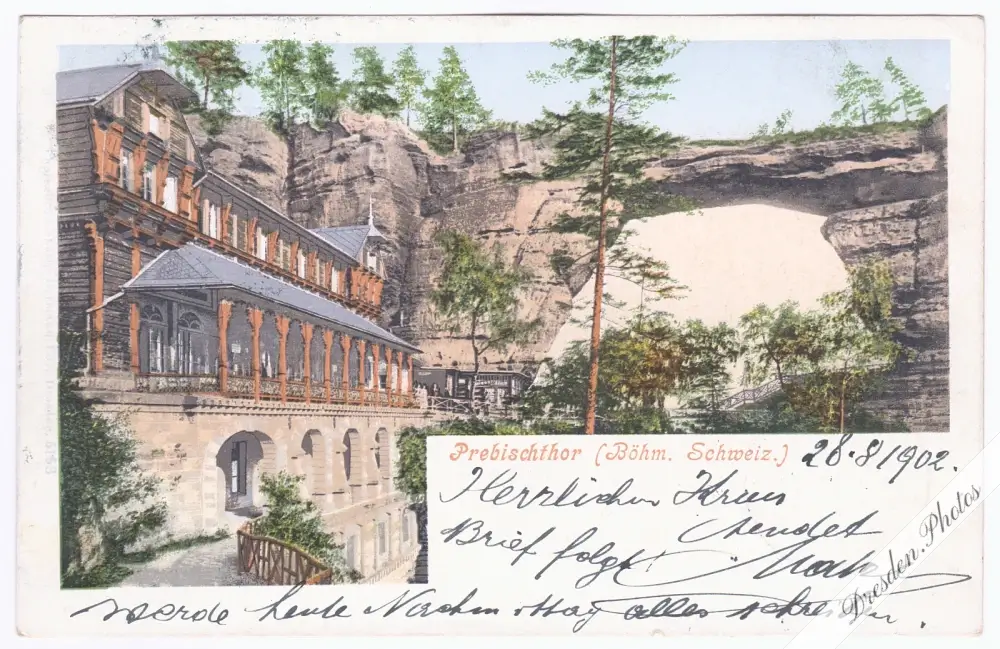 Prebischthor (Böhm. Schweiz.) 28.8/1902.
Herzlichen Kuss
sendet
Brief folgt
werde heute Nachm. alles schreiben.
Dresden.Photos